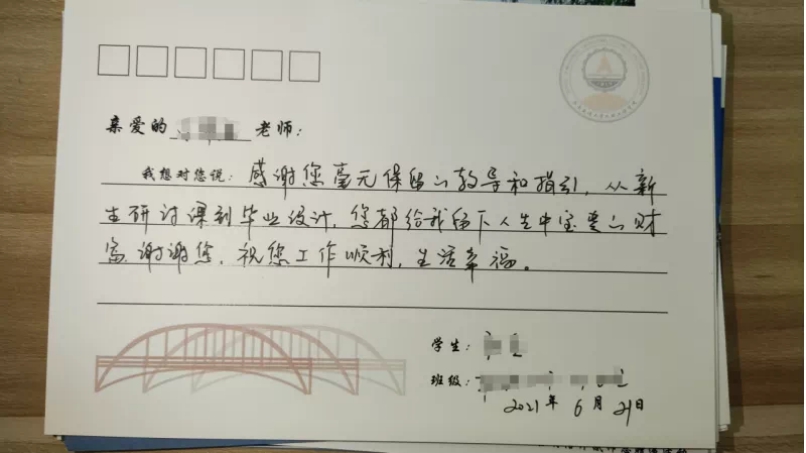 亲爱的 老师：
我想对您说：感谢您毫无保留的教导和指引，从新
生研讨课到毕业设计，您都给我留下人生中宝贵的财
富，谢谢您，祝您工作顺利，生活幸福。
学生：
班级：
2021年6月21日